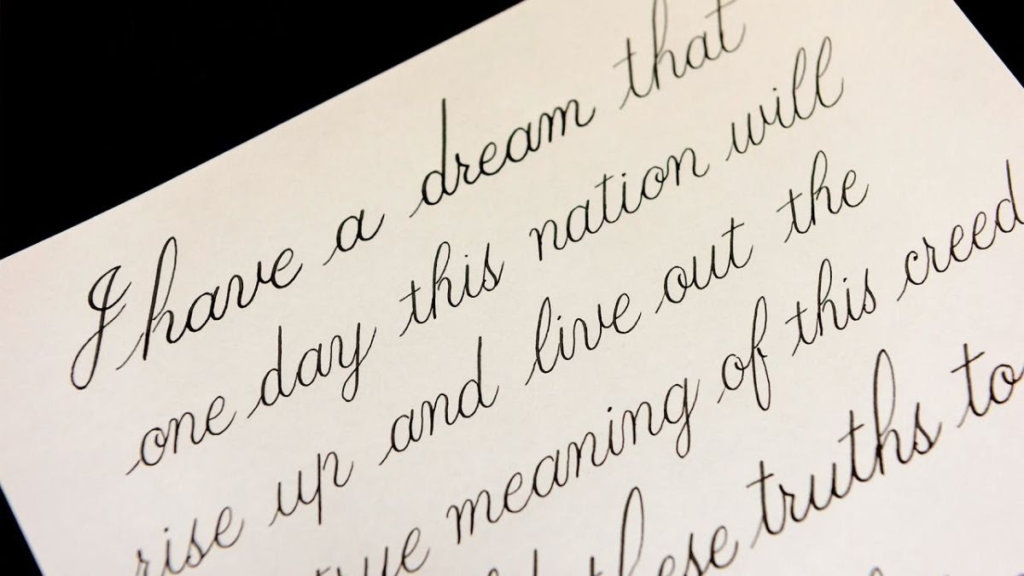 I have a dream that
one day this nation will
rise up and live out the
true meaning of this creed
these truths to